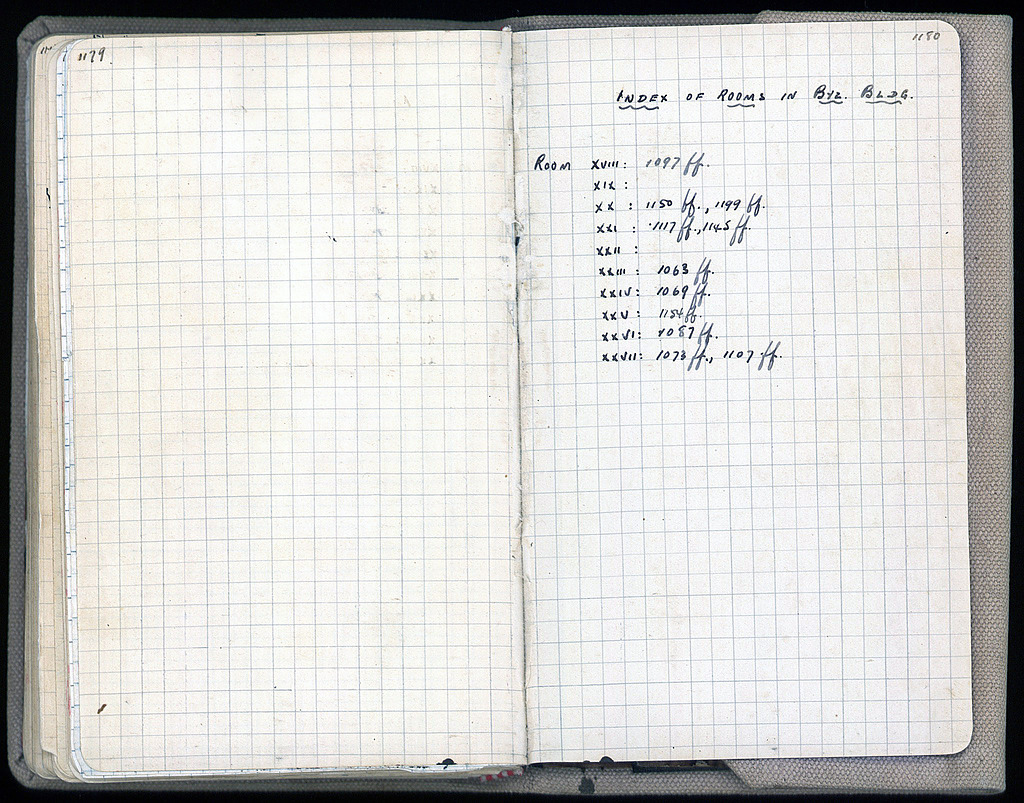 1179
1180
INDEX OF ROOMS IN BYZ. BLDG.
ROOM XVIII: 1097 ff.
XIX :
XX : 1150 ff., 1199 ff.
XXI : 1117 ff., 1145 ff.
XXII :
XXIII : 1063 ff.
XXIV: 1069 ff.
XXV : 1154 ff.
XXVI: 1087 ff.
XXVII: 1073 ff., 1107 ff.